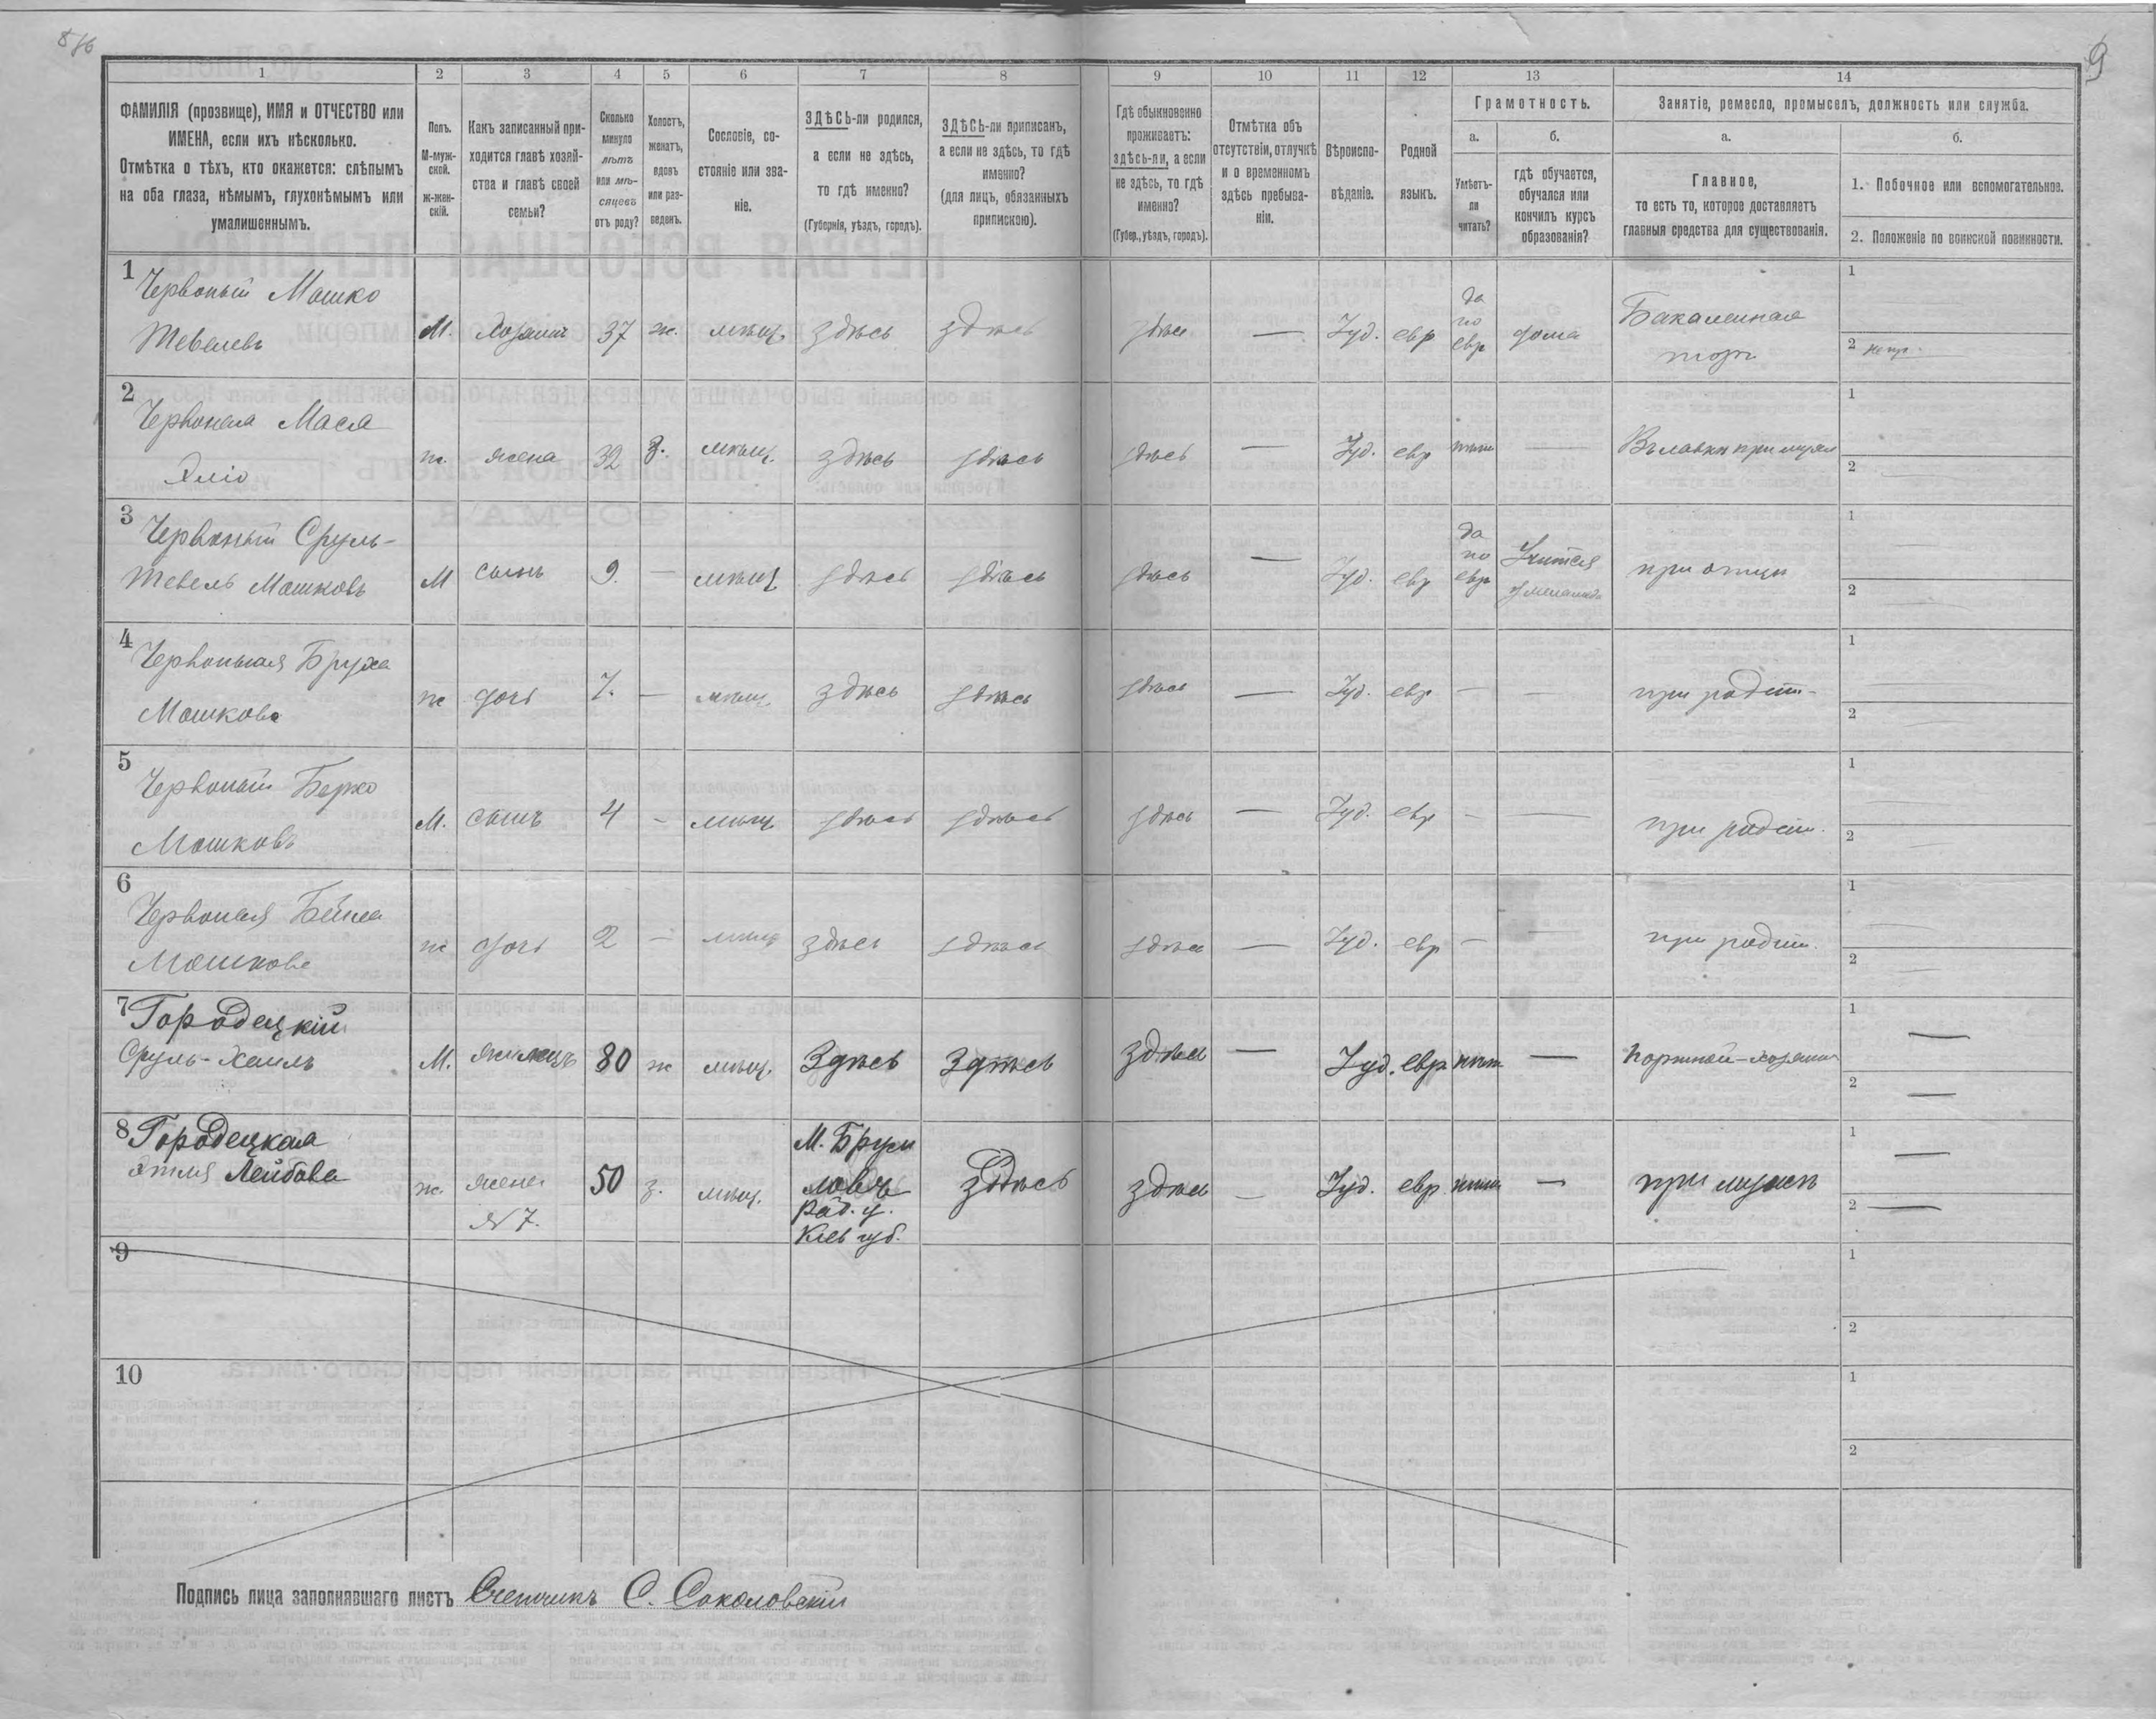 9
1 2 3 4 5 6 7 8 9 10 11 12 13 14
ФАМИЛІЯ (прозвище), ИМЯ и ОТЧЕСТВО или
ИМЕНА, если ихъ нѣсколько.
Отмѣтка о тѣхъ, кто окажется: слѣпымъ
на оба глаза, нѣмымъ, глухонѣмымъ или
умалишеннымъ.
Полъ.
М-муж-
ской.
Ж-жен-
скій.
Какъ записанный при-
ходится главѣ хозяй-
ства и главѣ своей
семьи?
Сколько
минуло
лѣтъ
или мѣ-
сяцевъ
отъ роду?
Холостъ,
женатъ,
вдовъ
или раз-
веденъ.
Сословіе, со-
стояніе или зва-
ніе.
ЗДѢСЬ-ли родился,
а если не здѣсь,
то гдѣ именно?
(Губернія, уѣздъ, городъ).
ЗДѢСЬ-ли приписанъ,
а если не здѣсь, то гдѣ
именно?
(для лицъ, обязанныхъ
припискою).
Гдѣ обыкновенно
проживаетъ:
здѣсь-ли, а если
не здѣсь, то гдѣ
именно?
(Губер., уѣздъ, городъ).
Отмѣтка объ
отсутствіи, отлучкѣ
и о временномъ
здѣсь пребыва-
ніи.
Вѣроиспо-
вѣданіе.
Родной
языкъ.
Грамотность.
а.
Умѣетъ-
ли
читать?
б.
гдѣ обучается,
обучался или
кончилъ курсъ
образованія?
Занятіе, ремесло, промыселъ, должность или служба.
а.
Главное,
то есть то, которое доставляетъ
главныя средства для существованія.
б.
1. Побочное или вспомогательное.
2. Положеніе по воинской повинности.
1 Червоный Мошко
Тевелевъ
М. Хозяинъ 37 ж. мѣщ. здѣсь здѣсь здѣсь — Іуд. евр
да
по
евр
дома
Бакалейная
торг
1
2
2 Червоная Мася
ж. жена 32 з. мѣщ. здѣсь здѣсь здѣсь — Іуд. евр нѣт — Въ лавкѣ при мужѣ
1
2
3 Червоный Сруль-
Тевель Мошковъ
М сынъ 9. — мѣщ здѣсь здѣсь здѣсь — Іуд. евр
да
по
евр
Учится
при отцѣ
1
2
4 Червоная Бруха
Мошкова
ж дочь 7. — мѣщ. здѣсь здѣсь здѣсь — Іуд. евр — — при родит-
1
2
5 Червоный Берко
Мошковъ
М. сынъ 4 — мѣщ здѣсь здѣсь здѣсь — Іуд. евр — — при родит.
1
2
6 Червоная Бейла
Мошкова
ж дочь 2 — мѣщ здѣсь здѣсь здѣсь — Іуд. евр — — при родит.
1
2
7 Городецкій
Сруль-Хаимъ
М. жилецъ 80 ж мѣщ. Здѣсь Здѣсь здѣсь — Іуд. евр нѣт — Портной-хозяинъ
1 —
2 —
8 Городецкая
Лейбова
ж. жена
№ 7.
50 з. мѣщ.
М. Бруси
ловъ
Рад. у.
Кіев губ.
Здѣсь здѣсь — Іуд. евр нѣт — при мужѣ
1 —
2 —
9
1
2
10
1
2
Подпись лица заполнявшаго листъ Счетчикъ С. Соколовскій